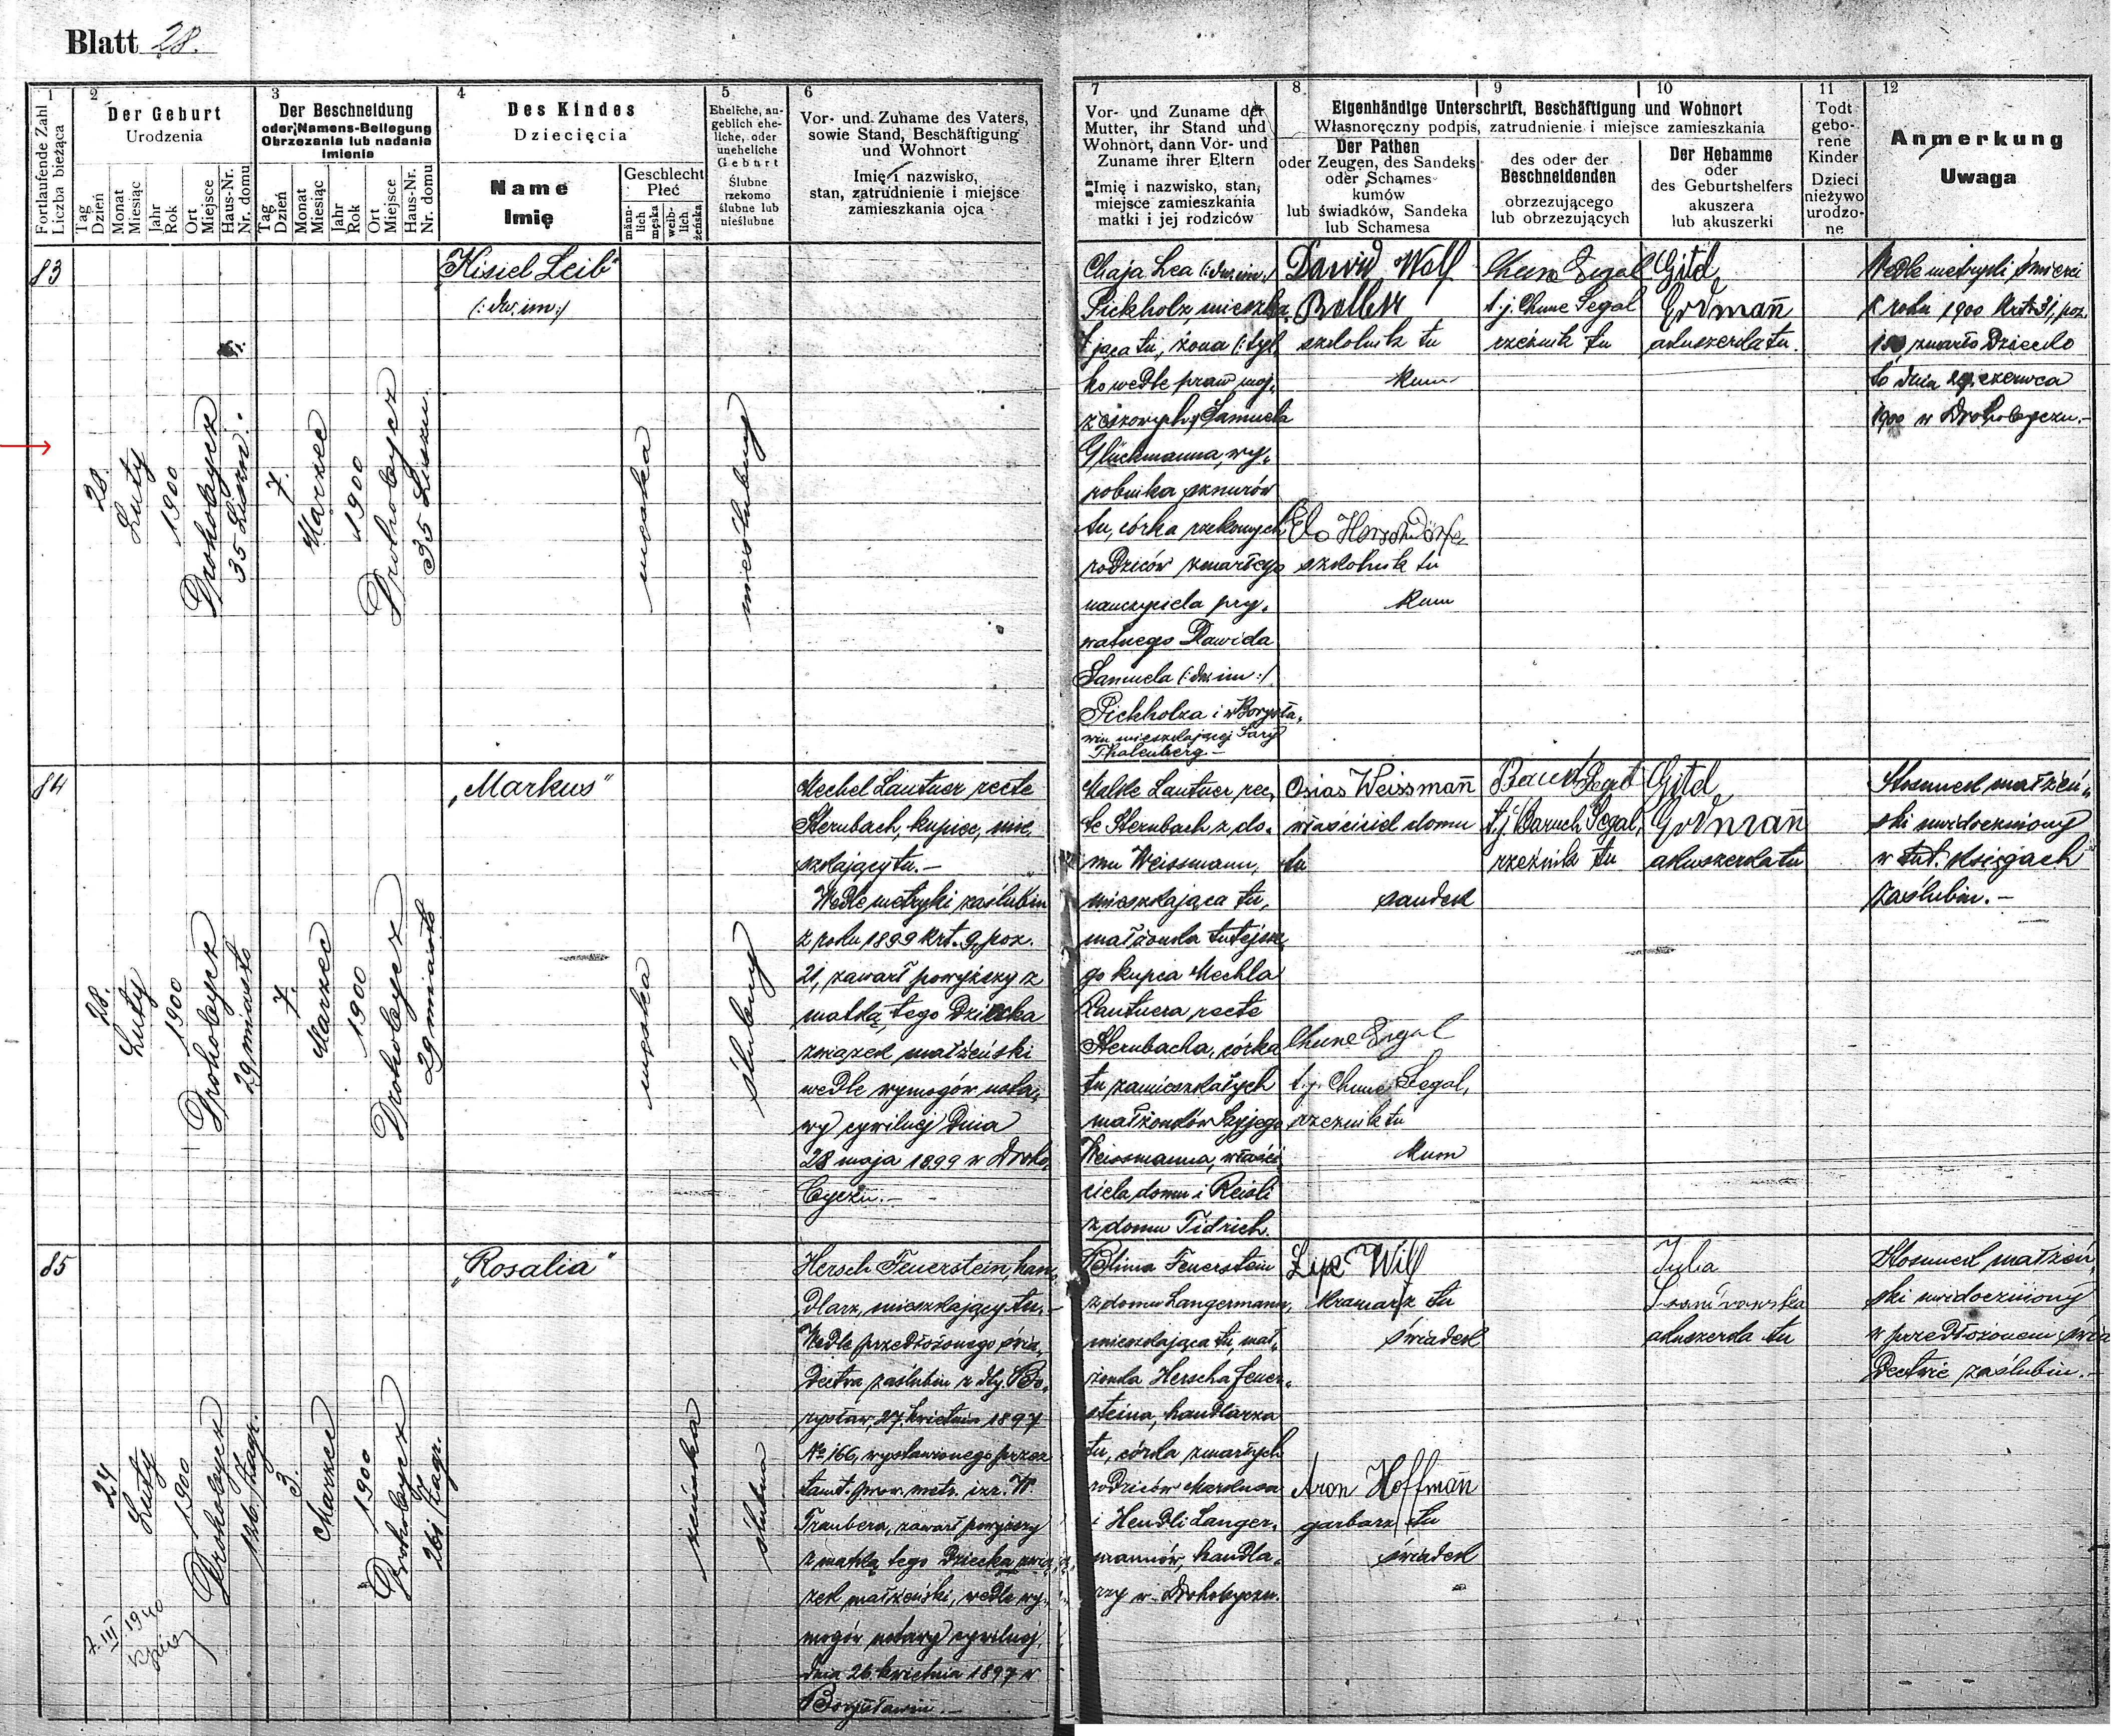 Blatt 28.
1
2
3
4
5
6
7
8
9
10
11
12
Fortlaufende Zahl
Liczba bieżąca
Der Geburt
Urodzenia
Tag
Dzień
Monat
Miesiąc
Jahr
Rok
Ort
Miejsce
Haus-Nr.
Nr. domu
Der Beschneidung
oder Namens-Beilegung
Obrzezania lub nadania
imienia
Tag
Dzień
Monat
Miesiąc
Jahr
Rok
Ort
Miejsce
Haus-Nr.
Nr. domu
Des Kindes
Dziecięcia
Name
Imię
Geschlecht
Płeć
männ-
lich
męska
weib-
lich
żeńska
Eheliche, an-
geblich ehe-
liche, oder
uneheliche
Geburt
Ślubne
rzekomo
ślubne lub
nieślubne
Vor- und Zuname des Vaters,
sowie Stand, Beschäftigung
und Wohnort
Imię i nazwisko,
stan, zatrudnienie i miejsce
zamieszkania ojca
Vor- und Zuname der
Mutter, ihr Stand und
Wohnort, dann Vor- und
Zuname ihrer Eltern
Imię i nazwisko, stan,
miejsce zamieszkania
matki i jej rodziców
Eigenhändige Unterschrift, Beschäftigung und Wohnort
Własnoręczny podpis, zatrudnienie i miejsce zamieszkania
Der Pathen
oder Zeugen, des Sandeks
oder Schames
kumów
lub świadków, Sandeka
lub Schamesa
des oder der
Beschneidenden
obrzezującego
lub obrzezujących
Der Hebamme
oder
des Geburtshelfers
akuszera
lub akuszerki
Todt
gebo-
rene
Kinder
Dzieci
nieżywo
urodzo-
ne
Anmerkung
Uwaga
83
28.
Luty
1900
Drohobycz
35 Liszn.
7.
Marzec
1900
Drohobycz
35 Liszn.
"Kisiel Leib"
(: dw. im :)
męska
nieślubny
Chaja Lea (: dw. im :)
Pickholz, mieszka,
jąca tu, żona (: tyl,
ko wedle praw moj,
żeszowych :) Samuela
Glückmanna, wy,
robnika sznurów
tu, córka rzekomych
rodziców zmarłego
nauczyciela pry,
watnego Dawida
Samuela (: dw. im :)
Pickholza i w Borysła,
wiu mieszkającej Sary
Thalenberg -
Dawid Wolf
szkolnik tu
kum
szkolnik tu
kum
Chune Segal
t. j. Chune Segal
rzeźnik tu
Gitl
Erdmañ
akuszerka tu.
Wedle metryki śmierci
z roku 1900 Krt. 31, poz.
zmarło dziecko
to dnia 29. czerwca
1900 w Drohobyczu. -
84
28.
Luty
1900
Drohobycz
29 miasto
7.
Marzec
1900
Drohobycz
29 miasto
"Markus"
męska
ślubny
Mechel Lautner recte
Sternbach, kupiec, mie,
szkający tu. -
Wedle metryki zaślubin
z roku 1899 Krt. 9, poz.
21, zawarł powyższy z
matką tego dziecka
związek małżeński
wedle wymogów usta,
wy cywilnej dnia
28 maja 1899 w Droho,
byczu. -
Malke Lautner rec,
te Sternbach z do,
mu Weissmann,
mieszkająca tu,
małżonka tutejsze,
go kupca Mechla
Lautnera recte
Sternbacha, córka
tu zamieszkałych
małżonków
Weissmanna, właści,
ciela domu i Reisli
z domu Tidrich.
Osias Weissmañ
właściciel domu
tu
sandek
Chune Segal
t. j. Chune Segal,
rzeźnik tu
kum
Baruch Segal
t. j. Baruch Segal,
rzeźnik tu
Gitl
Erdmañ
akuszerka tu
Stosunek małżeń,
ski uwidoczniony
w tut. księgach
zaślubin. -
85
24
Luty
1900
Drohobycz
3.
Marzec
1900
Drohobycz
Zagr.
7. III 1940
"Rosalia"
żeńska
ślubna
Hersch Feuerstein, han,
dlarz, mieszkający tu. -
Wedle przedłożonego świa,
dectwa zaślubin z dty. Bo,
rysław, 27. kwietnia 1897
No 166, wystawionego przez
tamt. prow. metr. izr. W.
Traubera, zawarł powyższy
z matką tego dziecka zwią,
zek małżeński, wedle wy,
mogów ustawy cywilnej,
dnia 26. kwietnia 1897 w
Borysławiu. -
Feuerstein
z domu Langermann,
mieszkająca tu, mał,
żonka Herscha Feuer,
steina, handlarza
tu, córka zmarłych
rodziców Markusa
i Hendli Langer,
mannów, handla,
rzy w Drohobyczu.
Wilf
kramarz tu
świadek
Aron Hoffmañ
garbarz tu
świadek
Julia
akuszerka tu
Stosunek małżeń,
ski uwidoczniony
w przedłożonem świa
dectwie zaślubin. -